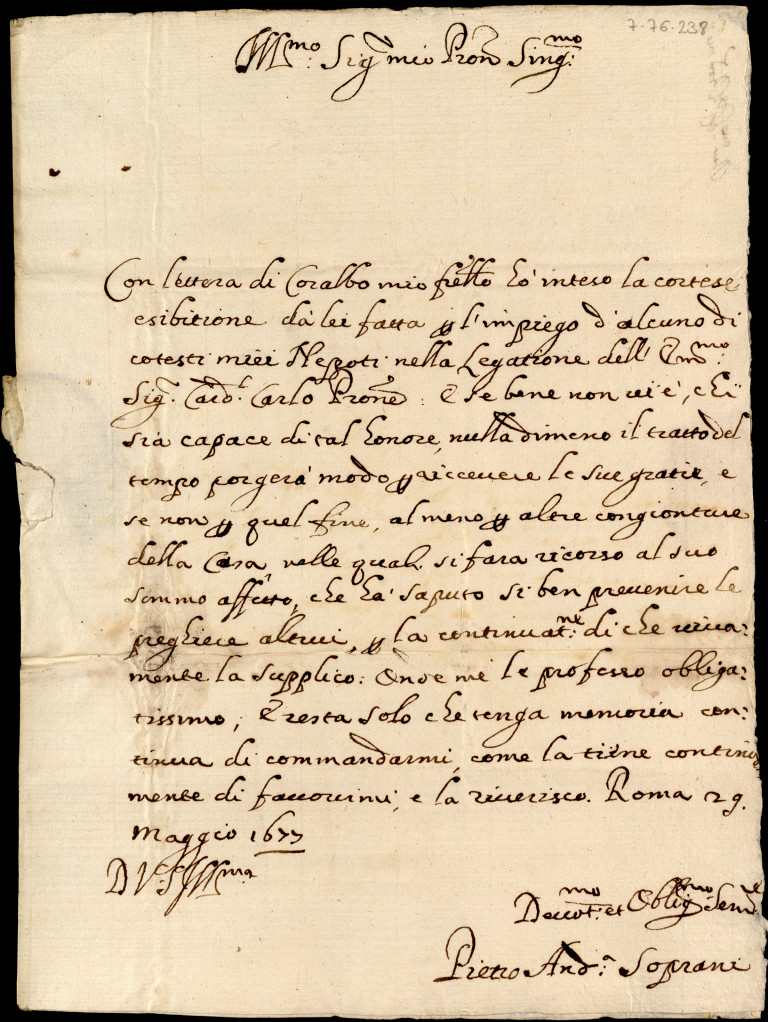 7-76-238
Illmo: Sigr mio Pron Singmo:
Con lettera di Coralbo mio frello hò inteso la cortese
esibitione dà lei fatta p l'impiego d'alcuno di
cotesti miei Nepoti nella Legatione dell' Emmo:
Sigr. Card:l Carlo Prone: E se bene non vi è, chi
sia capace di tal honore, nulladimeno il tratto del
tempo porgerà modo p riceuere le sue gratie, e
se non p quel fine, al meno p altre congionture
della Casa, nelle quali si farà ricorso al suo
sommo affetto, che hà saputo si ben preuenire le
preghiere altrui, p la continuatne: di che uiua:
mente la supplico: Onde mè le professo obliga:
tissimo, E resta solo che tenga memoria con:
tinua di commandarmi, come la tiene continua
mente di fauorirmi, e la riuerisco. Roma 29.
Maggio 1677
D V: S Illma
Deuotmo: et Obligmo Serure
Pietro And:a Soprani